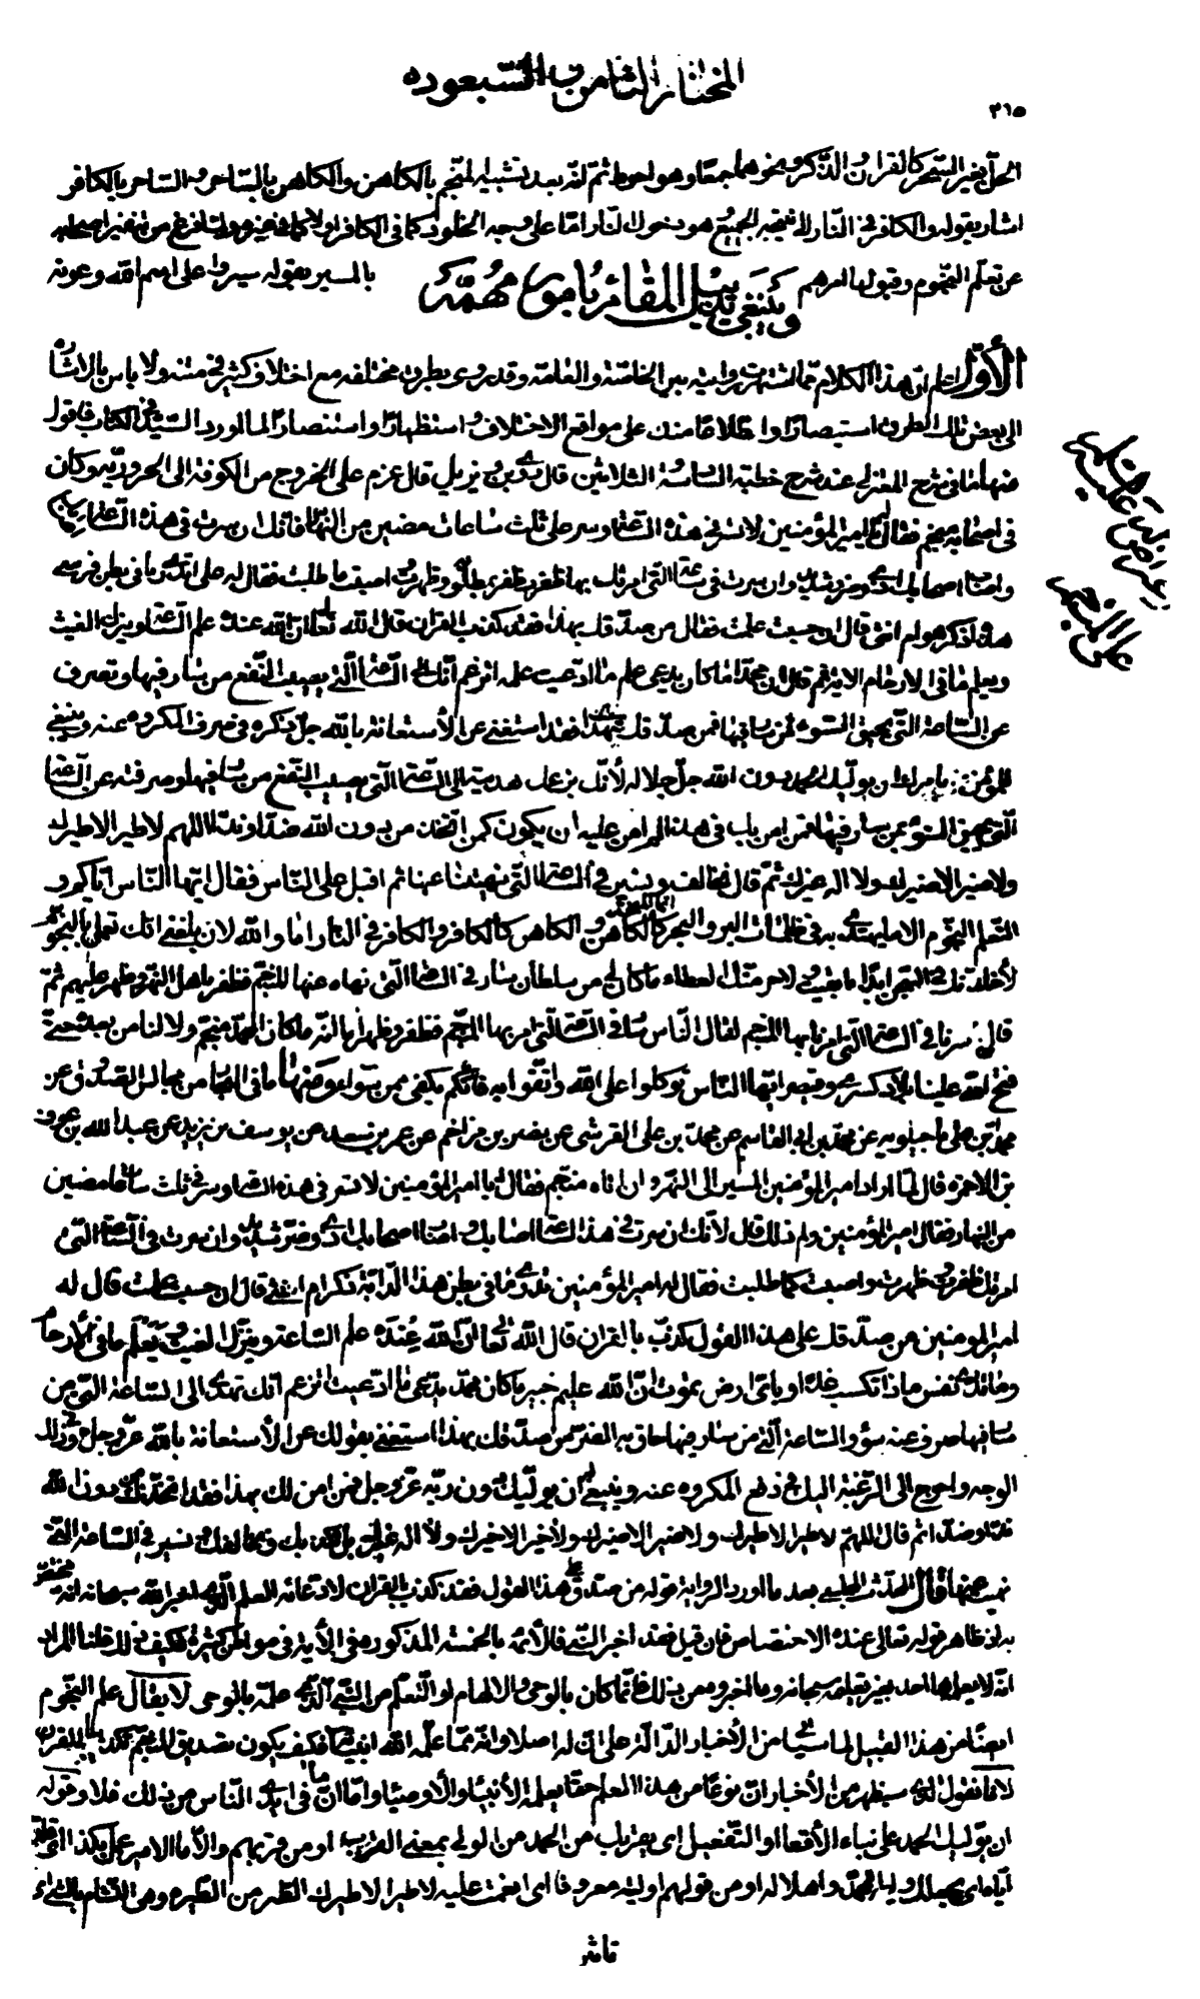 المختار الثامن و السبعون
٣١٥
الحل بغير السحر كالقران و الذكر و نحوهما جمعا و هو احوط ثم انه بعد تشبيه المنجم بالكاهن و الكاهن بالساحر و الساحر بالكافر
اشار بقوله و الكافر في النار الى نتيجة الجميع و هو دخول النار اما على وجه الخلود كما في الكافر او لا كما في غيره و لما فرغ من تنفير اصحابه
عن تعلم النجوم و قبول امرهم بالمسير بقوله سيروا على اسم الله و عونه
و ينبغي تذييل المقام بامور مهمة
الأول اعلم ان هذا الكلام مما اشتهرت روايته بين الخاصة و العامة و قد روى بطرق مختلفة مع اختلاف كثير في متنه و لا باس بالاشارة
الى بعض تلك الطرق استبصارا و اطلاعا منك على مواقع الاختلاف و استظهارا و استنصارا لما اورده السيد في الكتاب فاقول
منها ما في شرح المعتزلي عند شرح خطبة السادسة و الثلاثين قال روى بن ديزيل قال عزم على الخروج من الكوفة الى الحرورية و كان
في اصحابه منجم فقال يا امير المؤمنين لا تسر في هذه الساعة و سر على ثلث ساعات مضين من النهار فانك ان سرت في هذه الساعة اصابك
و اصاب اصحابك اذى و ضر شديد و ان سرت في الساعة التي امرتك بها ظفرت و ظهرت و اصبت ما طلبت فقال له على اتدرى ما في بطن فرسى
هذه اذكر هو ام انثى قال ان حسبت علمت فقال من صدقك بهذا فقد كذب بالقران قال الله تعالى ان الله عنده علم الساعة و ينزل الغيث
و يعلم ما في الارحام الاية ثم قال ان محمدا ما كان يدعى علم ما ادعيت علمه اتزعم انك تهدى الى الساعة التي يصيب النفع من سار فيها و تصرف
عن الساعة التي يحيق السوء لمن سار فيها فمن صدقك بهذا فقد استغنى عن الأستعانة بالله جل ذكره في صرف المكروه عنه و ينبغي
للموقن بامرك ان يوليك الحمد دون الله جل جلاله لأنك بزعمك هديته الى الساعة التي يصيب النفع من سار فيها و صرفته عن الساعة
التي يحيق السوء بمن سار فيها فمن امن بك في هذا لم امن عليه ان يكون كمن اتخذ من دون الله ضدا و ندا اللهم لا طير الا طيرك
و لا ضير الا ضيرك و لا اله غيرك ثم قال نخالف و نسير في الساعة التي نهيتنا عنها ثم اقبل على الناس فقال ايها الناس اياكم و
التعلم للنجوم الا ما يهتدى به في ظلمات البر و البحر انما المنجم كالكاهن و الكاهن كالكافر و الكافر في النار اما و الله لان بلغني انك تعمل بالنجوم
لأخلدنك في السجن ابدا ما بقيت و لاحرمنك العطاء ما كان لي من سلطان ثم سار في الساعة التي نهاه عنها المنجم فظفر باهل النهر و ظهر عليهم ثم
قال لو سرنا في الساعة التي امرنا بها المنجم لقال الناس سار في الساعة التي امر بها المنجم فظفر و ظهر اما انه ما كان لمحمد منجم و لا لنا من بعده حتى
فتح الله علينا بلاد كسرى و قيصر ايها الناس توكلوا على الله و اتقوا به فانه يكفى ممن سواه و منها ما في البحار من مجالس الصدوق عن
محمد بن على ماجيلويه عن محمد بن ابي القاسم عن محمد بن على القرشي عن نصر بن مزاحم عن عمر بن سعد عن يوسف بن يزيد عن عبد الله بن عوف
بن الاحمر قال لما اراد امير المؤمنين المسير الى النهروان اتاه منجم فقال له يا امير المؤمنين لا تسر في هذه الساعة و سر في ثلث ساعات مضين
من النهار فقال امير المؤمنين و لم ذلك قال لأنك ان سرت في هذه الساعة اصابك و اصاب اصحابك اذى و ضر شديد و ان سرت في الساعة التي
امرتك ظفرت و ظهرت و اصبت كلما طلبت فقال له امير المؤمنين تدرى ما في بطن هذه الدابة ذكر ام انثى قال ان حسبت علمت قال له
امير المؤمنين من صدقك على هذا القول كذب بالقران قال الله تعالى ان الله عنده علم الساعة و ينزل الغيث و يعلم ما في الأرحام
و ما تدرى نفس ماذا تكسب غدا و ما تدرى نفس باى ارض تموت ان الله عليم خبير ما كان محمد يدعى ما ادعيت اتزعم انك تهدى الى الساعة التي من
سار فيها صرف عنه سوء و الساعة التي من سار فيها حاق به الضر من صدقك بهذا استغنى بقولك عن الأستعانة بالله عز و جل في ذلك
الوجه و احوج الى الرغبة اليك في دفع المكروه عنه و ينبغي له ان يوليك الحمد دون ربه عز و جل فمن امن لك بهذا فقد اتخذك من دون الله
ندا و ضدا ثم قال اللهم لا طير الا طيرك و لا ضير الا ضيرك و لا خير الا خيرك و لا اله غيرك بل نكذبك و نخالفك و نسير في الساعة التي
نهيت عنها قال المحدث المجلسي بعد ما اورد الرواية قوله من صدقك على هذا القول فقد كذب بالقران لادعائه العلم الذي اخبر الله سبحانه انه مختص
به اذ ظاهر قوله تعالى عنده الاختصاص فان قيل فقد اخبر النبي و الأئمة بالخمسة المذكورة في الأية في مواطن كثيرة فكيف ذلك قلنا المراد
انه لا يعلمها احد بغير تعليمه سبحانه و ما اخبروه من ذلك فانما كان بالوحى و الالهام او التعلم من النبي الذي علمه بالوحى لا يقال علم النجوم
ايضا من هذا القبيل لما سياتى من الأخبار الدالة على ان له اصلا و انه مما علمه الله انبيائه فكيف يكون تصديق المنجم تكذيبا للقران
لانا نقول الذي سيظهر من الأخبار ان نوعا من هذا العلم حقا يعلمه الأنبياء و الأوصياء و اما ان ما في ايدى الناس من ذلك فلا و قوله
ان يوليك الحمد على بناء الأفعال او التفعيل اى يقربك من الحمد من الولى بمعنى القرب او من قولهم والاه الامير عمل كذا اى قلده
اياه اى يجعلك وليا للحمد و اهلا له او من قولهم اوليته معروفا اى انعمت عليه لا طير الا طيرك الطير من الطيرة و هى التشأم بالشىء
تاثير
اعتراض المنجم على امير المؤمنين